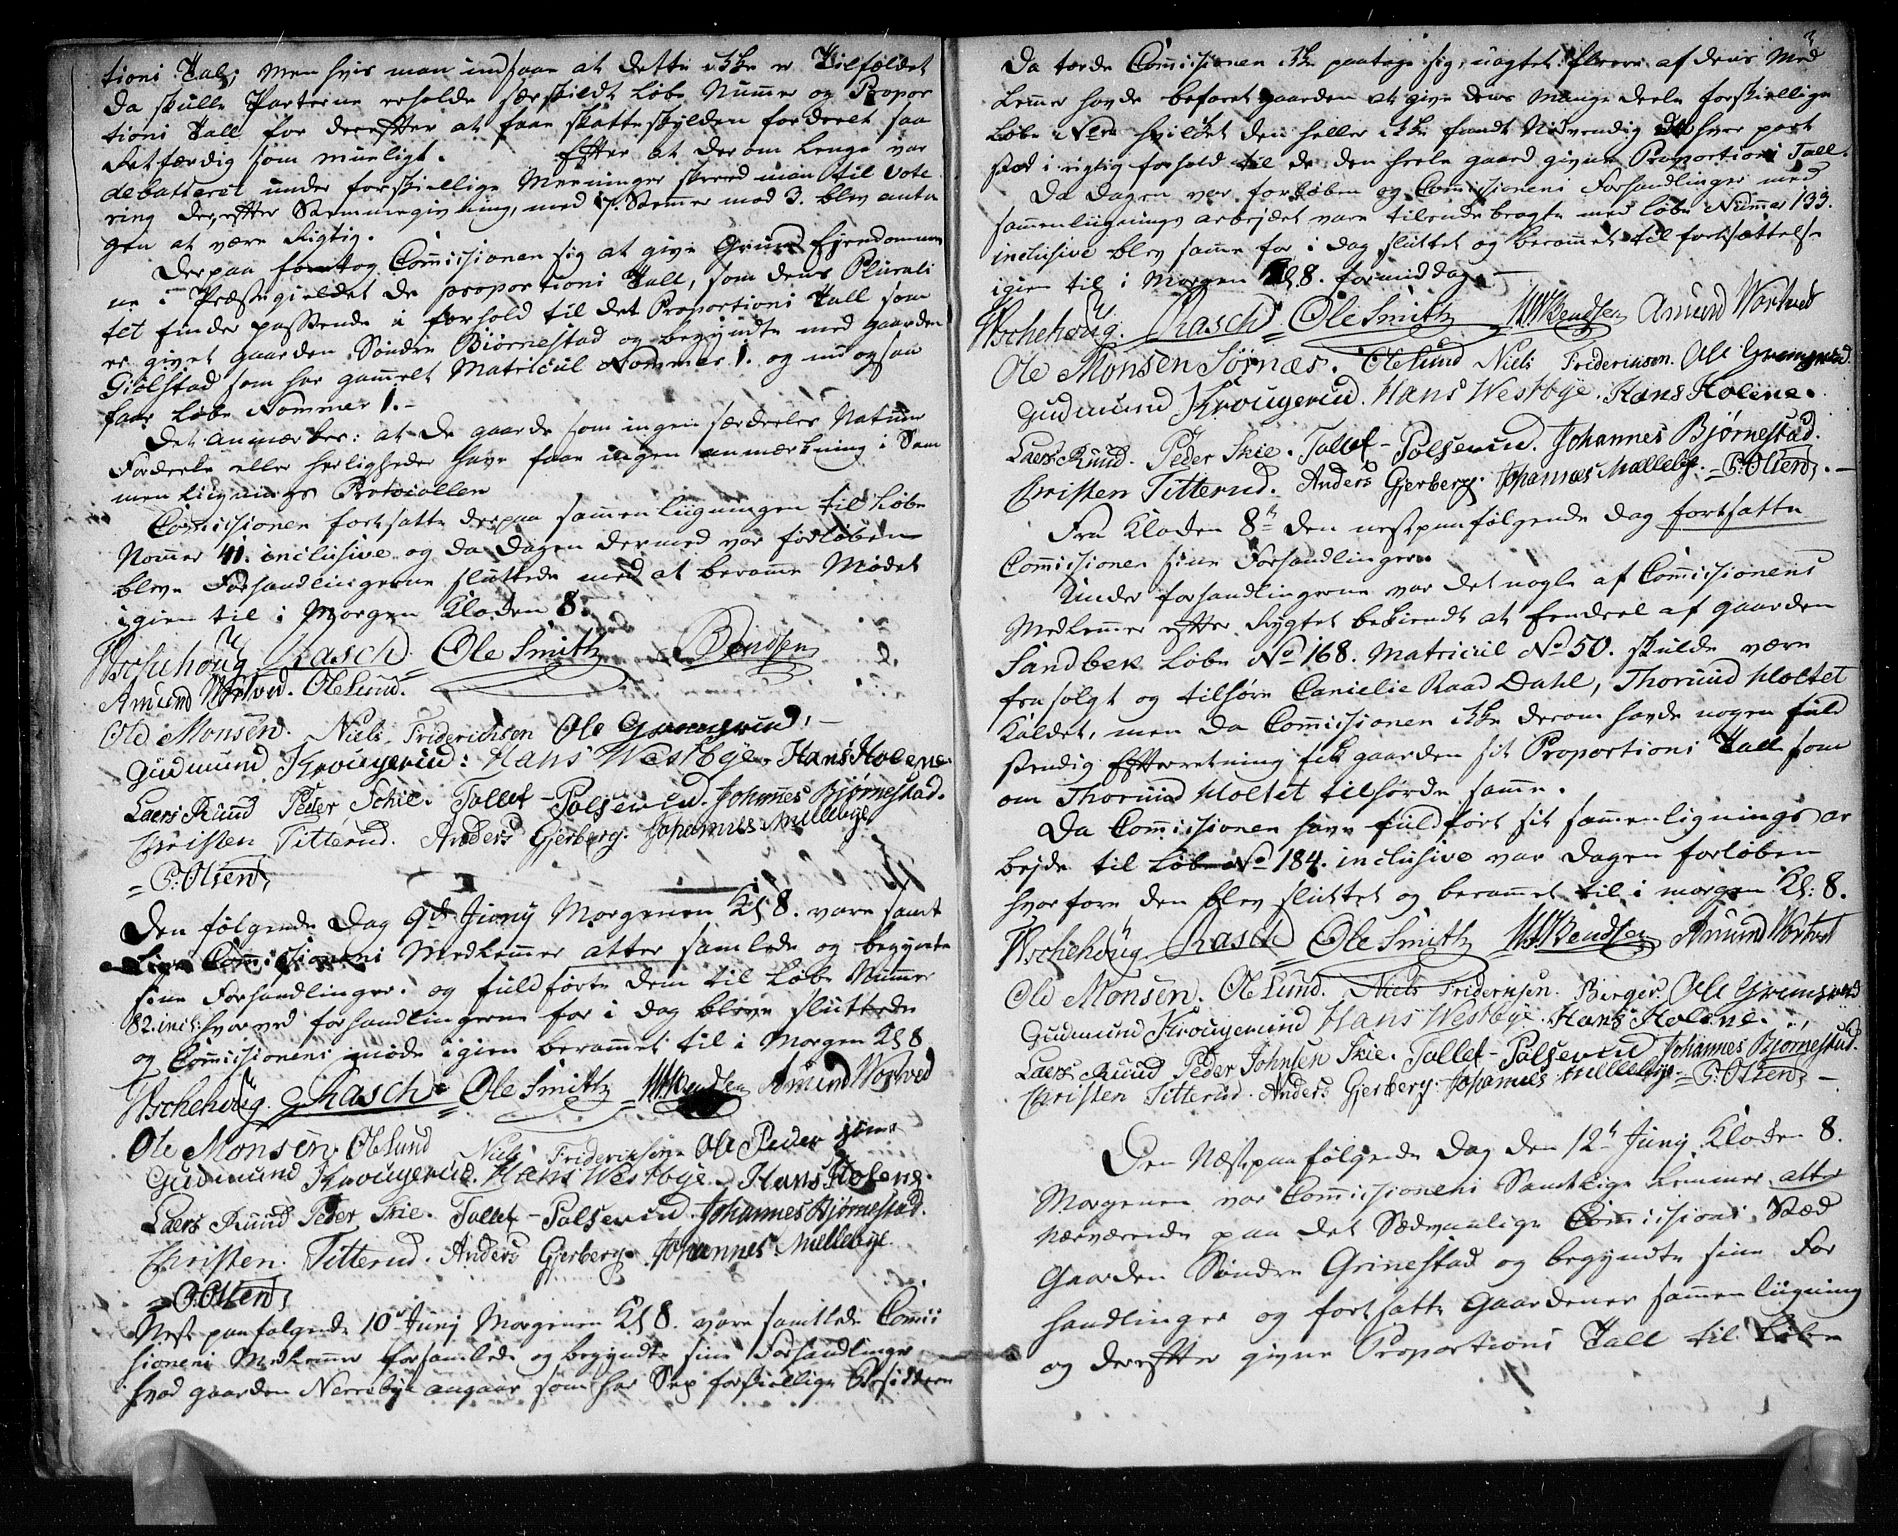 tions Tal; men hvis man indsaae at dette ikke er Tilfældet
da skulle Parterne erholde særskildt Løbe Nummer og Propor
tions Tall for derefter at faae Skatteskylden fordeelt saa
Retfærdig som mueligt. Efter at derom lenge var
debatteret under forskiellige Meeninger skreed man til Vote
ring derefter Stemmegivning, med 17 Stemer mod 3. blev anta
gen at være Rigtig.
Derpaa foretog Commissionen sig at give Grund Ejendomme
ne i Præstegieldet de proportions Tall, som dens Plurali
tet finder passende i forhold til det Proportions Tall som
er givet gaarden Søndre Biørnestad og begyndte med gaarden
Giølstad som har gammelt Matricul Nommer 1. og nu ogsaa
faar Løbe Nommer 1.-
Det anmærkes: at de gaarde som ingen særdeeles Natur
Fordeele eller herligheder have faae ingen anmærkning i Sam
menligning's Protocollen
Commissionen fortsatte derpaa sammenligningen til Løbe
Nommer 41. inclusive og da dagen dermed var forløben
bleve Forhandlingerne sluttede med at beramme Mødet
igien til i Morgen Kloken 8.
Wschehoug Rasch Ole Smith Bendsen
Amund Wortved. Ole Lund.
Ole Monsen. Niels Friderichsen Ole Gremgrud.
Gudmund Krougerud: Hans Westbye. Hans Holene.
Laers Ruud Peder Schie. Tollef Polserud. Johannes Bjørnestad.
Christen Titterud. Anders Gjerberg. Johannes Mellebye
P: Olsen
Den følgende Dag 9de Juny Morgenen Kl 8. vare samt
lige Commissionens Medlemmer atter samlede og begynte
sine Forhandlinger. og fuldførte dem til Løbe Nummer
82. incl: hvorved forhandlingerne for i dag bleve sluttede
og Commissionens møde igien berammet til i Morgen Kl 8
Wschehoug. Rasch Ole Smith Bendsen Amund Wortved
Ole Monsen. Ole Lund Niels Friderichsen Ole Peder
Gudmund Krougerud. Hans Westbye. Hans Holene.
Laers Ruud Peder Skie. Tollef Polserud. Johannes Bjørnestad.
Christen. Titterud. Anders Gjerberg. Johannes Mellebye
P: Olsen
Nest paafølgende 10de Juny Morgenen Kl 8. vare samtlede Commis
sionens Medlemmer forsamlede og begyndte sine Forhandlinger
hvad gaarden Nerrebye angaar som har Sex forskiellige Besiddere
Da torde Commissionen ikke paatage sig, uagtet flere af dens Med
lemmer havde befaret gaarden at give dens mange deele forskiellige
Løbe Nera hvilket den heller ikke fandt Nødvendig da hver part
stod i rigtig forhold til de den heele gaard givne Proportions Tall.
Da dagen var forløben og Commissionens Forhandlinger med
sammenlignings arbejdet vare tilendebragte med løbe Nummer 133.
inclusive blev samme for i dag sluttet og berammet til fortsættelse
igien til i Morgen Kl 8. formiddag.
Wschehoug. Rasch Ole Smith Bendsen Amund Wortved
Ole Monsen Sørnæs. Ole Lund Niels Friderichsen. Ole Gremgrud
Gudmund Krougerud. Hans Westbye. Hans Holene.
Laers Ruud. Peder Skie. Tollef Polserud. Johannes Bjørnestad.
Christen Titterud. Anders Gjerberg. Johannes Mellebye. P: Olsen.
Fra Kloken 8te den nestpaafølgende dag fortsatte
Commissionen sine Forhandlinger.
Under forhandlingerne var det nogle af Commissionens
Medlemmer efter Rygtet bekiendt at Eendeel af gaarden
Sandbek Løbe No 168. Matricul No 50. skulde være
frasolgt og tilhøre Raad Dahl, Thorund Holtet
kaldet, men da Commissionen ikke derom havde nogen fuld
stendig Efterretning fik gaarden sit Proportions Tall som
om Thorund Holtet tilhørde samme.
Da Commissionen have fuldført sit sammenlignings ar
bejde til Løbe No 184. inclusive var dagen forløben
hvorfore den blev sluttet og berammet til i morgen Kl: 8.
Wschehoug. Rasch Ole Smith Bendsen Amund Wortved
Ole Monsen. Ole Lund. Niels Friderichsen. Berger. Ole Gremgrud
Gudmund Krougerud Hans Westbye. Hans Holene.
Laers Ruud Peder Johnsen Skie. Tollef Polserud Johannes Bjørnestad.
Christen Titterud. Anders Gjerberg. Johannes Mellebye. P: Olsen
Den Næstpaafølgende Dag den 12te Juny Kloken 8.
Morgenen var Commissionens Samtlige Lemmer atter
nærværende paa det Sædvanlige Commissions Stæd
Gaarden Søndre Grinestad og begyndte sine For
handlinger og fortsatte Gaardenes sammenligning
og derefter givne Proportions Tall til Løbe